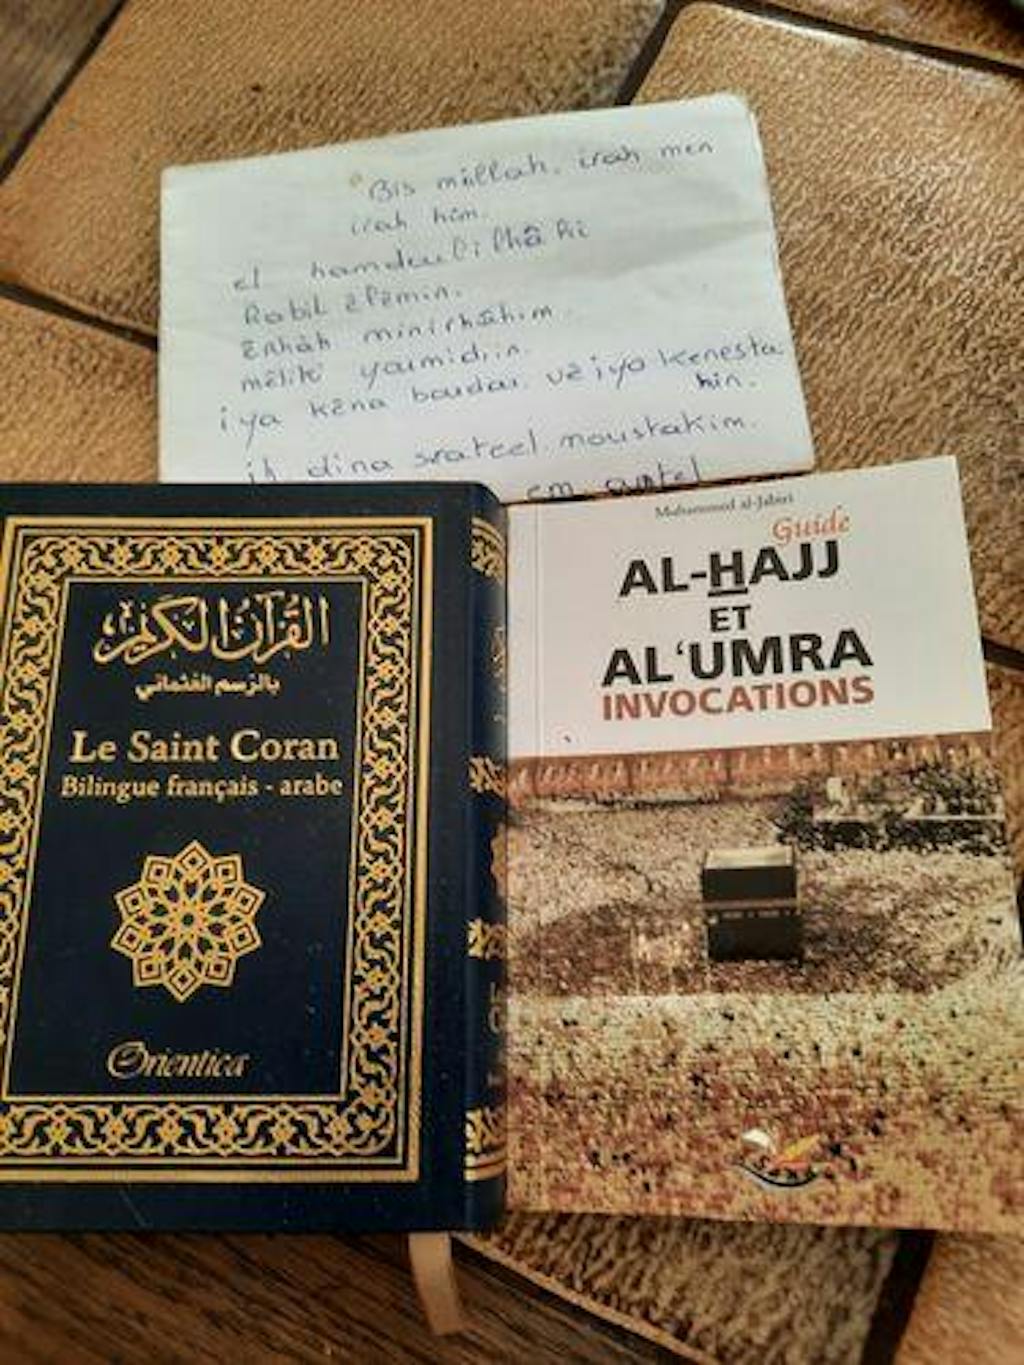 Bis millah. irah men
irah him.
el hamdeulilhâhi
Rabil ālāmin.
Erhâh minirhâhim
mêliki yaumidiin.
iya kêna boudou. vè iya kenesta
hin.
ih dina srateel moustakim.
em amtel
القرآن الكريم
بالرسم العثماني
Le Saint Coran
Bilingue français - arabe
Orientica
Muhammed al-Jabari
Guide
AL-HAJJ
ET
AL'UMRA
INVOCATIONS